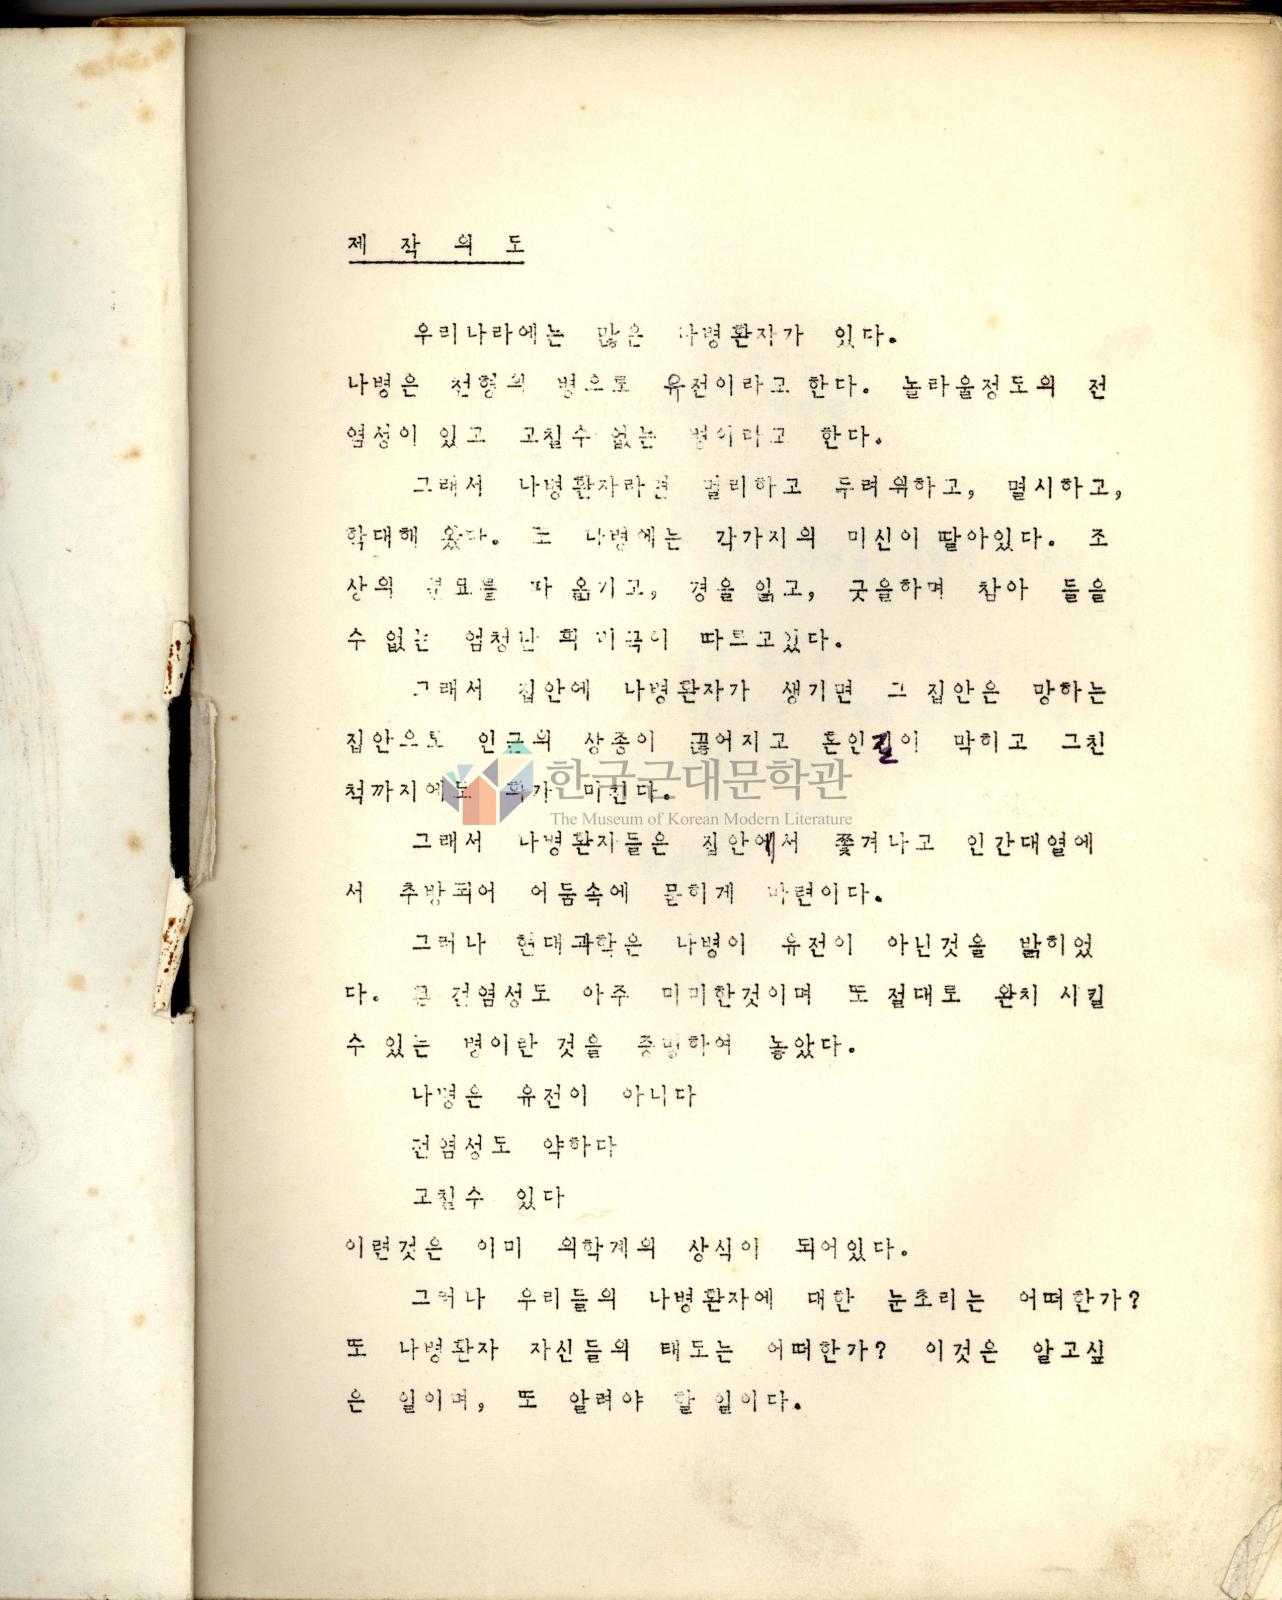 제 작 의 도
우리나라에는 많은 나병환자가 있다.
나병은 천형의 병으로 유전이라고 한다. 놀라울정도의 전
염성이 있고 고칠수 없는 병이라고 한다.
그래서 나병환자라면 멀리하고 두려워하고, 멸시하고,
학대해 왔다. 또 나병에는 각가지의 미신이 딸아있다. 조
상의 분묘를 파 옮기고, 경을 읽고, 굿을하며 참아 들을
수 없는 엄청난 희비극이 따르고있다.
그래서 집안에 나병환자가 생기면 그 집안은 망하는
집안으로 인근의 상종이 끊어지고 혼인길이 막히고 그친
척까지에도 화가 미친다.
한국근대문학관
The Museum of Korean Modern Literature
그래서 나병환자들은 집안에서 쫓겨나고 인간대열에
서 추방되어 어둠속에 묻히게 마련이다.
그러나 현대과학은 나병이 유전이 아닌것을 밝히었
다. 전염성도 아주 미미한것이며 또 절대로 완치 시킬
수 있는 병이란 것을 증명하여 놓았다.
나병은 유전이 아니다
전염성도 약하다
고칠수 있다
이런것은 이미 의학계의 상식이 되어있다.
그러나 우리들의 나병환자에 대한 눈초리는 어떠한가?
또 나병환자 자신들의 태도는 어떠한가? 이것은 알고싶
은 일이며, 또 알려야 할 일이다.